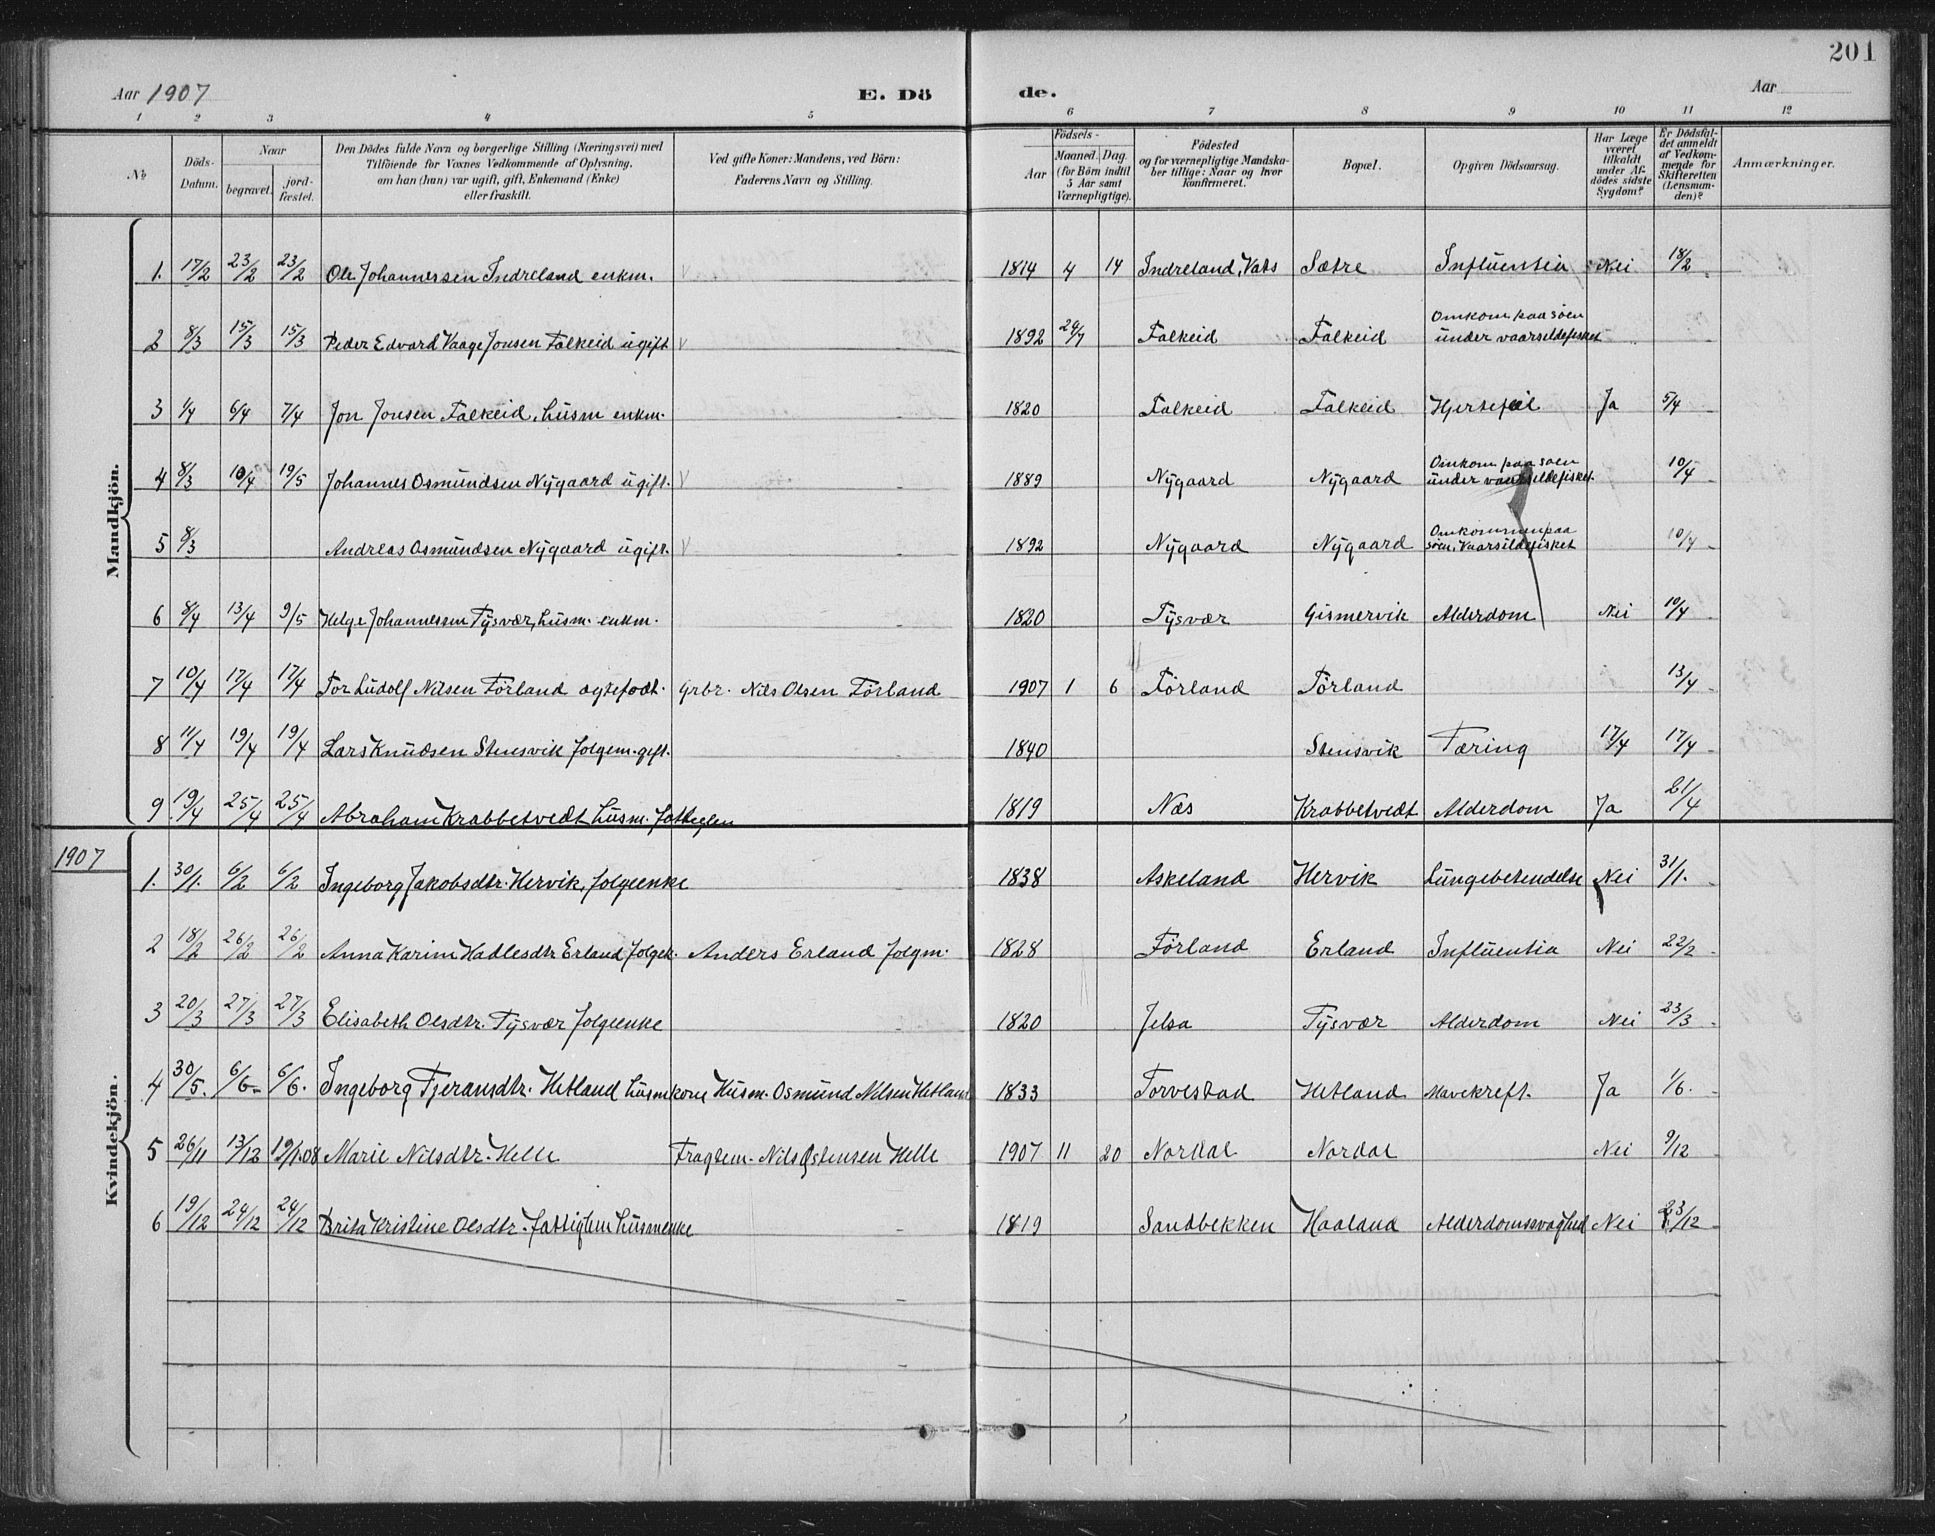 201
Aar 1907 E. Dö de. Aar
1 2 3 4 5 6 7 8 9 10 11 12
No
Döds-Datum.
Naar
begravet.
jord-fæstet.
Den Dödes fulde Navn og borgerlige Stilling (Næringsvei) med
Tilföiende for Voxnes Vedkommende af Oplysning,
om han (hun) var ugift, gift, Enkemand (Enke)
eller fraskilt.
Ved gifte Koner: Mandens, ved Börn:
Faderens Navn og Stilling.
Födsels-
Aar
Maaned. Dag
(for Börn indtil
5 Aar samt
Værnepligtige).
Födested
og for værnepligtige Mandska-
ber tillige: Naar og hvor
konfirmeret.
Bopæl.
Opgiven Dödsaarsag.
Har Læge
været
tilkaldt
under Af-
dödes sidste
Sygdom?
Er Dödsfal-
det anmeldt
af Vedkom-
mende for
Skifteretten
(Lensman-
den)?
Anmærkninger.
Mandkjön.
1. 17/2 23/2 23/2 Ole Johannessen Indreland enkm. V 1814 4 14 Indreland, Vats Sætre Influentia Nei 18/2
2 8/3 15/3 15/3 Peder Edvard Vaage Jonsen Falkeid ugift V 1892 29/7 Falkeid Falkeid Omkom paa söen
under vaarsildefisket
3 1/4 6/4 7/4 Jon Jonsen Falkeid, husm enkm. 1820 Falkeid Falkeid Hjertefeil Ja 5/4
4 8/3 10/4 19/5 Johannes Osmundsen Nygaard ugift. V 1889 Nygaard Nygaard Omkom paa söen
under vaarsildefisket. 10/4
5 8/3 Andreas Osmundsen Nygaard ugift. V 1892 Nygaard Nygaard Omkommen paa
söen, Vaarsildefisket 10/4
6 8/4 13/4 9/5 Helge Johannessen Tysvær, husm. enkm. 1820 Tysvær Gismervik Alderdom Nei 10/4
7 10/4 17/4 17/4 Tor Ludolf Nilsen Förland egtefödt. Grbr. Nils Olsen Förland 1907 1 6 Förland Förland 13/4
8 11/4 19/4 19/4 Lars Knudsen Stensvik folgem. gift. 1840 Stensvik Tæring 17/4 17/4
9. 19/4 25/4 25/4 Abraham Krabbetvedt husm. fattiglem 1819 Næs Krabbetvedt Alderdom Ja 21/4
1907
Kvindekjön.
1. 30/1. 6/2 6/2 Ingeborg Jakobsdtr. Hervik, folgeenke 1838 Askeland Hervik Lungebetendelse Nei 31/1.
2 18/2 26/2 26/2 Anna Karine Hadlesdtr Erland folgek. Anders Erland folgm. 1828 Förland Erland Influentia Nei 22/2
3 20/3 27/3 27/3 Elisabeth Olsdtr. Tysvær folgeenke 1820 Jelsa Tysvær Alderdom Nei 23/3
4 30/5. 6/6 6/6. Ingeborg Tjeransdtr. Hetland husmkone Husm. Osmund Nilsen Hetland 1833 Torvestad Hetland Mavekreft. Ja 1/6.
5 26/11 13/12 19/1.08 Marie Nilsdtr. Helle Nils Östensen Helle 1907 11 20 Nordal Nordal Nei 9/12
6 19/12 24/12 24/12 Brita Kristine Olsdtr. fattiglem husmenke 1819 Sandbekken Haaland Alderdomssvaghed Nei 23/12